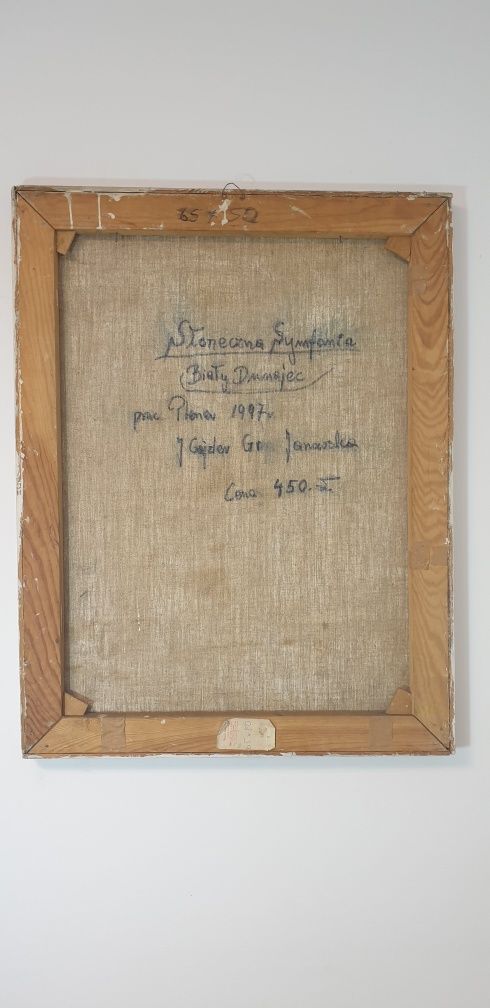 65 x 50
Słoneczna Symfonia
Biały Dunajec
prac Plener 1997r.
Janowska
Cena 450.-